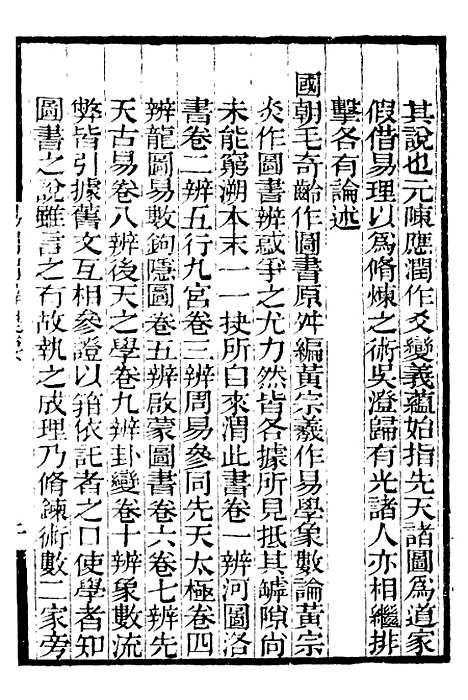 其說也元陳應潤作爻變義蘊始指先天諸圖爲道家
假借易理以爲脩煉之術吳澄歸有光諸人亦相繼排
擊各有論述
國朝毛奇齡作圖書原舛編黃宗羲作易學象數論黃宗
炎作圖書辨惑爭之尤力然皆各據所見抵其罅隙尚
未能窮溯本末一一抉所自來渭此書卷一辨河圖洛
書卷二辨五行九宮卷三辨周易參同先天太極卷四
辨龍圖易數鉤隱圖卷五辨啟蒙圖書卷六卷七辨先
天古易卷八辨後天之學卷九辨卦變卷十辨象數流
弊皆引據舊文互相參證以箝依託者之口使學者知
圖書之說雖言之有故執之成理乃脩鍊術數二家旁